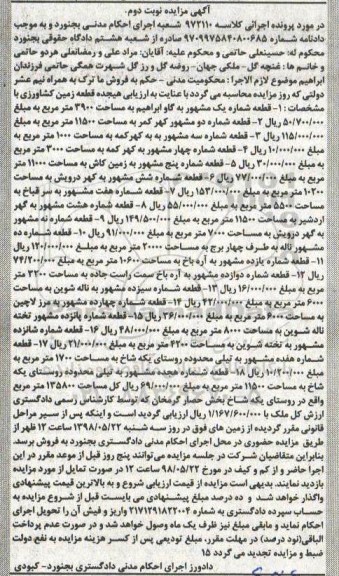 آگهی مزایده نوبت دوم.
در مورد پرونده اجرائی کلاسه ۹۷۲۱۱۰ شعبه اجرای احکام مدنی بجنورد و به موجب
دادنامه شماره ۹۷۰۹۹۷۵۸۴۰۸۰۰۶۸۵ صادره از شعبه هشتم دادگاه حقوقی بجنورد
محکوم له: حسینعلی حاتمی و محکوم علیه: آقایان: مراد علی و رمضانعلی هردو حاتمی
و خانم ها : غنچه گل- ملکی جهان - روضه گل و رز گل شهرت همگی حاتمی فرزندان
ابراهیم موضوع لازم الاجرا : محکومیت مدنی - حکم به فروش ما ترک به همراه نیم عشر
دولتی که روز مزایده محاسبه می گردد با عنایت به ارزیابی هیجده قطعه زمین کشاورزی با
مشخصات : ۱- قطعه شماره یک مشهور به گاو ابراهیم به مساحت ۳۹۰۰ متر مربع به مبلغ
۵۰/۷۰۰/۰۰۰ ریال ۲- قطعه شماره دو مشهور گهر کمر به مساحت ۱۱۵۰۰ متر مربع به مبلغ
۱۱۵/۰۰۰/۰۰۰ ۳- قطعه شماره سه مشهور به به گهر کمه به مساحت ۱۰۰۰ متر مربع به
مبلغ ۱۰/۰۰۰/۰۰۰ ریال ۴- قطعه شماره چهار مشهور به گهر کمه به مساحت ۳۰۰۰ متر مربع
به مبلغ ۳۰/۰۰۰/۰۰۰ ریال ۵- قطعه شماره پنج مشهور به زمین کاش به مساحت ۱۱۰۰۰ متر
مربع به مبلغ ۷۷/۰۰۰/۰۰۰ ریال ۶- قطعه شماره شش مشهور به گهر درویش به مساحت
۱۰۲۰۰ متر مربع به مبلغ ۱۵۳/۰۰۰/۰۰۰ ریال ۷- قطعه شماره هفت مشهور به بر قیاخ به
مساحت ۵۵۰۰ متر مربع به مبلغ ۵۵/۰۰۰/۰۰۰ ریال ۸- قطعه شماره هشت مشهور به گهر
اردشیر به مساحت ۱۱۵۰۰ متر مربع به مبلغ ۱۴۹/۵۰۰/۰۰۰ ریال ۹- قطعه شماره نه مشهور
به گهر درویش به مساحت ۷۰۰۰ متر مربع به مبلغ ۹۱/۰۰۰/۰۰۰ ریال ۱۰- قطعه شماره ده
مشهور ناله به طرف چهار برج به مساحت ۲۰۰۰۰ متر مربع به مبلغ ۱۲۰/۰۰۰/۰۰۰ ریال
۱۱- قطعه شماره یازده مشهور به آره باخ به مساحت ۱۰۶۰۰ متر مربع به مبلغ ۷۴/۲۰۰/۰۰۰
ریال ۱۲- قطعه شماره دوازده مشهور به آره باخ سمت راست جاده به مساحت ۳۲۰۰ متر
مربع به مبلغ ۱۶/۰۰۰/۰۰۰ ریال ۱۳- قطعه شماره سیزده مشهور به ناله شوین به مساحت
۶۰۰۰ متر مربع به مبلغ ۴۲/۰۰۰/۰۰۰ ریال ۱۴- قطعه شماره چهارده مشهور به مرز لاچین
به مساحت ۶۰۰۰ متر مربع به مبلغ ۳۶/۰۰۰/۰۰۰ ریال ۱۵- قطعه شماره پانزده مشهور تخته
ناله شوین به مساحت ۸۰۰۰ متر مربع به مبلغ ۴۸/۰۰۰/۰۰۰ ریال ۱۶- قطعه شماره شانزده
مشهور به تخته شوین به مساحت ۴۲۰۰ متر مربع به مبلغ ۲۱/۰۰۰/۰۰۰ ریال ۱۷- قطعه
شماره هفده مشهور به تیلی محدوده روستای یکه شاخ به مساحت ۱۷۰۰ متر مربع به
مبلغ ۱۰/۲۰۰/۰۰۰ ریال ۱۸- قطعه شماره هجده مشهور به تیلی محدوده روستای یکه
شاخ به مساحت ۱۱۵۰۰ متر مربع به مبلغ ۶۹/۰۰۰/۰۰۰ ریال کل مساحت ۱۳۵۸۰۰ متر مربع
واقع در روستای یکه شاخ بخش حصار گرمخان که توسط کارشناس رسمی دادگستری
ارزش کل ملک با ۱/۱۶۷/۶۰۰/۰۰۰ ریال ارزیابی گردید است و اینکه پس از سیر مراحل
قانونی مقرر گردیده از زمین های فوق در روز سه شنبه ۱۳۹۸/۰۵/۲۲ ساعت ۱۲ ظهر از
طریق مزایده حضوری در محل اجرای احکام مدنی دادگستری بجنورد به فروش برسد.
بنابراین متقاضیان شرکت در جلسه مزایده می‌توانند پنج روز قبل از موعد مقرر در این
اجرا حاضر و از کم و کیف در مورخ ۹۸/۰۵/۲۲ ساعت ۱۲ در صورت تمایل از مورد مزایده
بازدید نمایند. بدیهی است مزایده از قیمت ارزیابی شروع و به بالاترین قیمت پیشنهادی
واگذار خواهد شد و ده درصد مبلغ پیشنهادی می بایست قبل از شروع مزایده به
حساب سپرده دادگستری به شماره ۲۱۷۱۲۹۱۸۲۲۰۰۴ واریز و فیش آن را تحویل اجرای
احکام نماید و مابقی مبلغ نیز ظرف یک ماه وصول خواهد شد و در صورت عدم پرداخت
الباقی(نود درصد) در مهلت مقرر، مبلغ تودیعی پس از کسر هزینه مزایده به نفع دولت
ضبط و مزایده تجدید می گردد ۱۵
دادورز اجرای احکام مدنی دادگستری بجنورد- کبودی